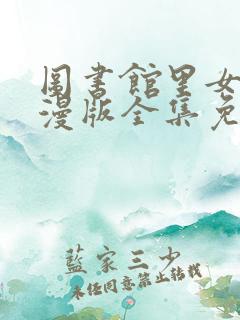 圖書館里女
漫版全集免
藍家三少
未经同意禁止转载